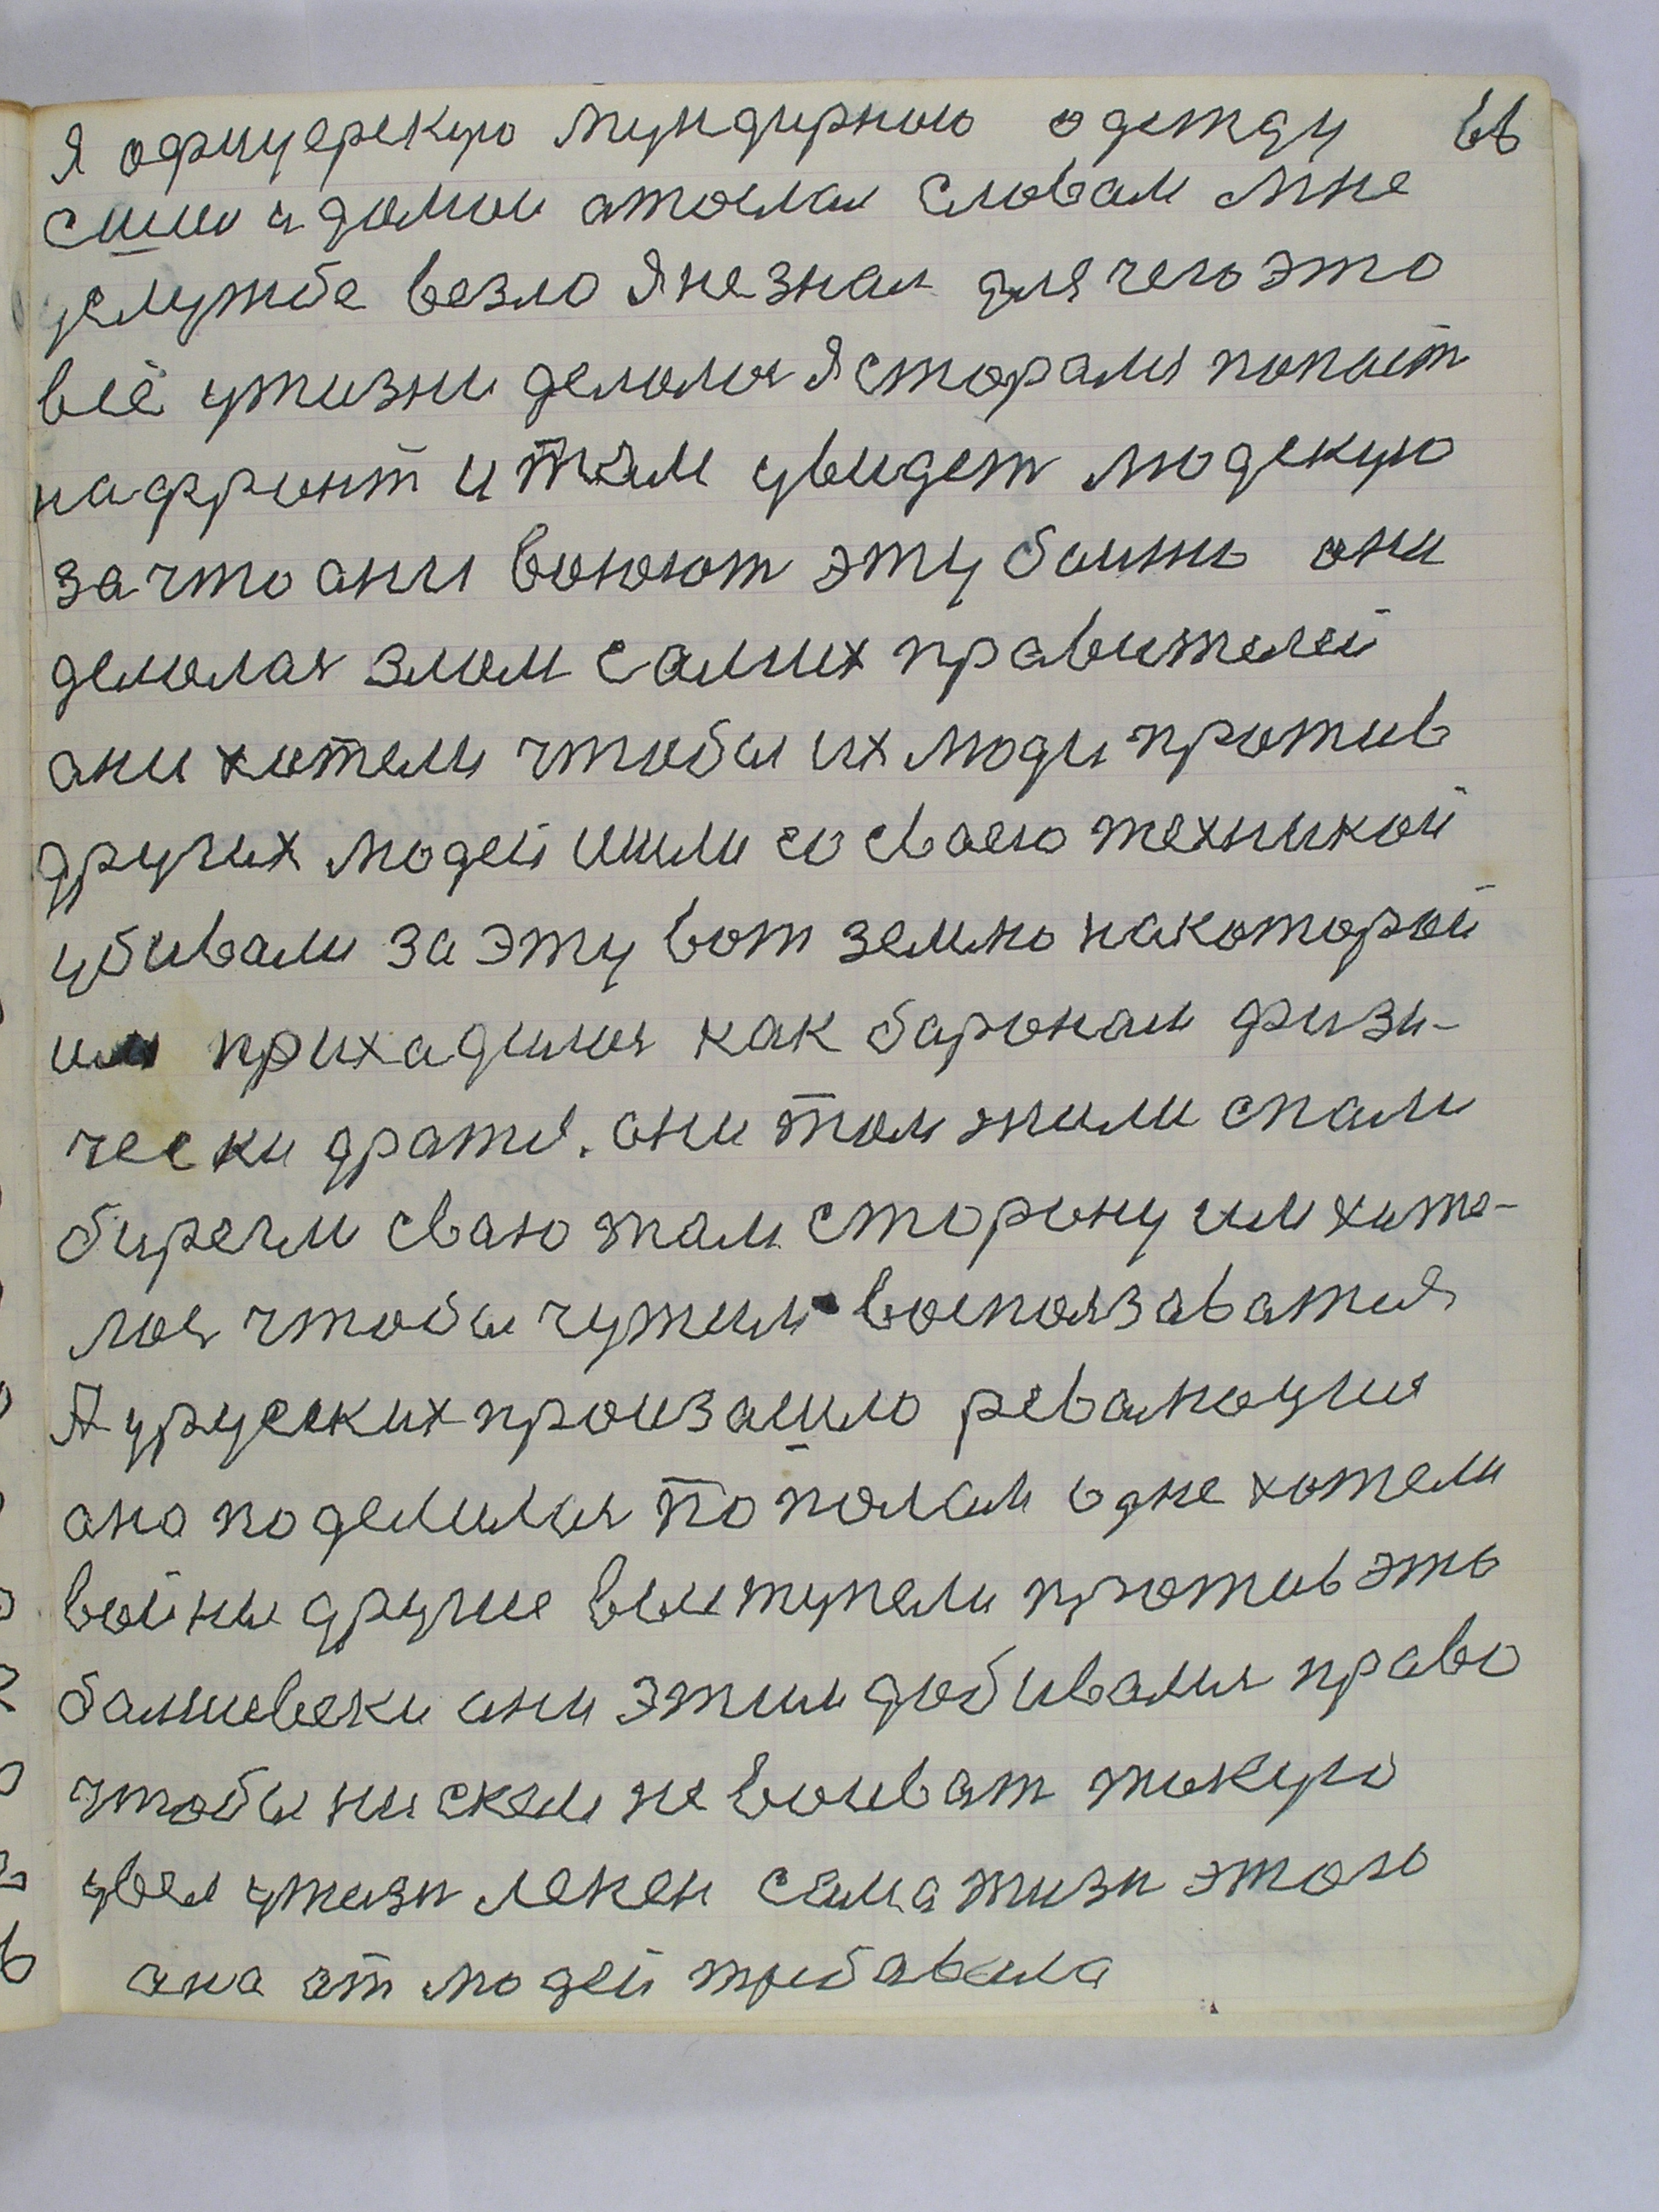 Я офицерскую мундирною одежду 66
сшил и домои атослал Словам мне
услужбе везло Я незнал для чего это
всё ужизни делолоя Я сторался попаст
нафронт и там увидет людскую
за что они воюют эту боинь они
делолоя злом самих правителей
они хотели чтобы их люди против
других людей ишли со сваею техникой
убивали за эту вот землю накоторой
им прихадилоя как баронам физи-
чески дратя. они там жили спали
биреглм сваю там сторону им хите-
лоя чтобы чужим воспоязаватия
А уруских произашло реваноция
ано поделилия по полам одне хотели
войны другие выступали против это
балшевеки ани этим добивалия право
чтобы ни скем не воиват такую
увел ужизн ленен сама жизн этого
ана от людей требавала